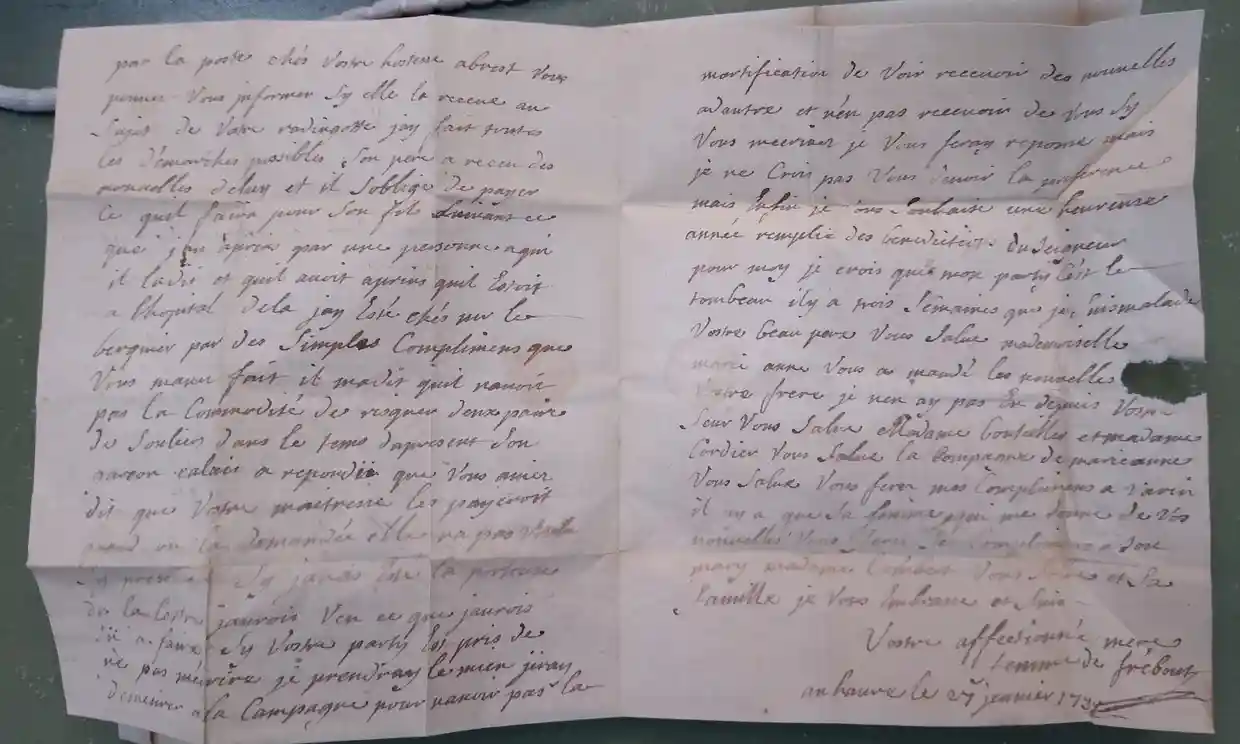 par la poste chés vostre hotesse abrest vous
pouvez vous jnformer sy elle la receue au
sujet de votre redingotte jay fait toutes
les démarches possibles son pere a receu des
nouvelles deluy et il soblige de payer
ce quil faira pour son fils suivant ce
que jen aprins par une personne aqui
il ladit et quil avoit aprins quil Estoit
a lhopital dela jay Esté chés mr le
berquier par des simples Complimens que
vous mavez fait il madit quil navoit
pas la Commodité de risquer deux paire
de souliers dans le tems dapresent son
garcon calais a repondu que vous aviez
dit que vostre maitresse les payeroit
quand on la demandée elle na pas
sy jamais Esté la porteuse
de la lettre jaurois veu ce que jaurois
eu a faire sy vostre party Est pris de
ne pas mécrire je prendray le mien jiray
demeurer ala Campagne pour navoir pas la
mortification de voir recevoir des nouvelles
adautre et nen pas recevoir de vous sy
vous mecrivez je vous feray reponse mais
je ne Crois pas vous devoir la preference
mais Enfin je vous souhaite une heureuse
année remplie des benedictions du seigneur
pour moy je crois que mon party Cest le
tombeau il y a trois semaines que je suis malade
vostre beau pere vous salue mademoiselle
marie anne vous a mandé les nouvelles
vostre frere je nen ay pas Eu depuis vostre
seur vous salue Madame et madame
Cordier vous salue la Compagne de marie anne
vous salue vous ferez mes Complimens a
il ny a que sa femme qui me donne de vos
nouvelles vous ferez Complimens a son
mary madame vous salue et sa
famille je vous Embrasse et suis
Vostre affectionnée mere
femme de frebourg
au havre le 27 janvier 17